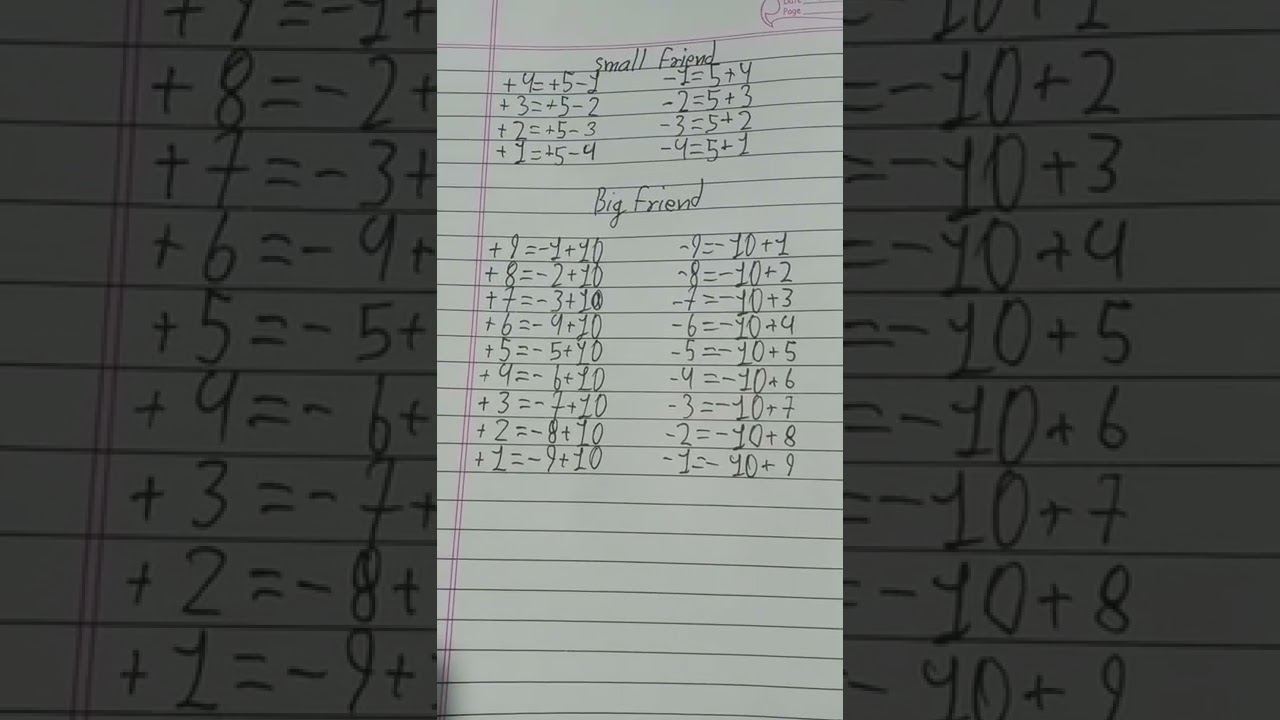 Date
Page
Small Friend
+4=+5-1 -1=5+4
+3=+5-2 -2=5+3
+2=+5-3 -3=5+2
+1=+5-4 -4=5+1
Big Friend
+9=-1+10 -9=-10+1
+8=-2+10 -8=-10+2
+7=-3+10 -7=-10+3
+6=-4+10 -6=-10+4
+5=-5+10 -5=-10+5
+4=-6+10 -4=-10+6
+3=-7+10 -3=-10+7
+2=-8+10 -2=-10+8
+1=-9+10 -1=-10+9